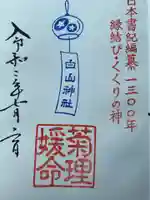 日本書紀編纂一三〇〇年
縁結び・くくりの神
白山神社
菊理
媛命
令和二年七月六日